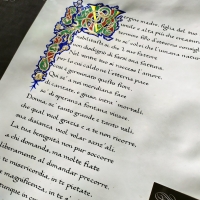 madre, figlia del tuo
e alta più che
fisso d'etterno
tu se' colei che l'umana
sì, che 'l suo fattore
disdegnò di farsi sua fattura.
ventre tuo si raccese l'amore,
per lo cui caldo ne l'etterna pace
germinato questo fiore.
Qui se' a noi meridiana face
di caritate, e giuso, intra ' mortali,
se' di speranza fontana vivace.
Donna, se' tanto grande e tanto vali,
che qual vuol grazia e a te non ricorre,
sua disianza vuol volar sanz' ali.
La tua benignità non pur soccorre
a chi domanda, ma molte fiate
liberamente al dimandar precorre.
te misericordia, in te pietate,
te magnificenza, in te
in